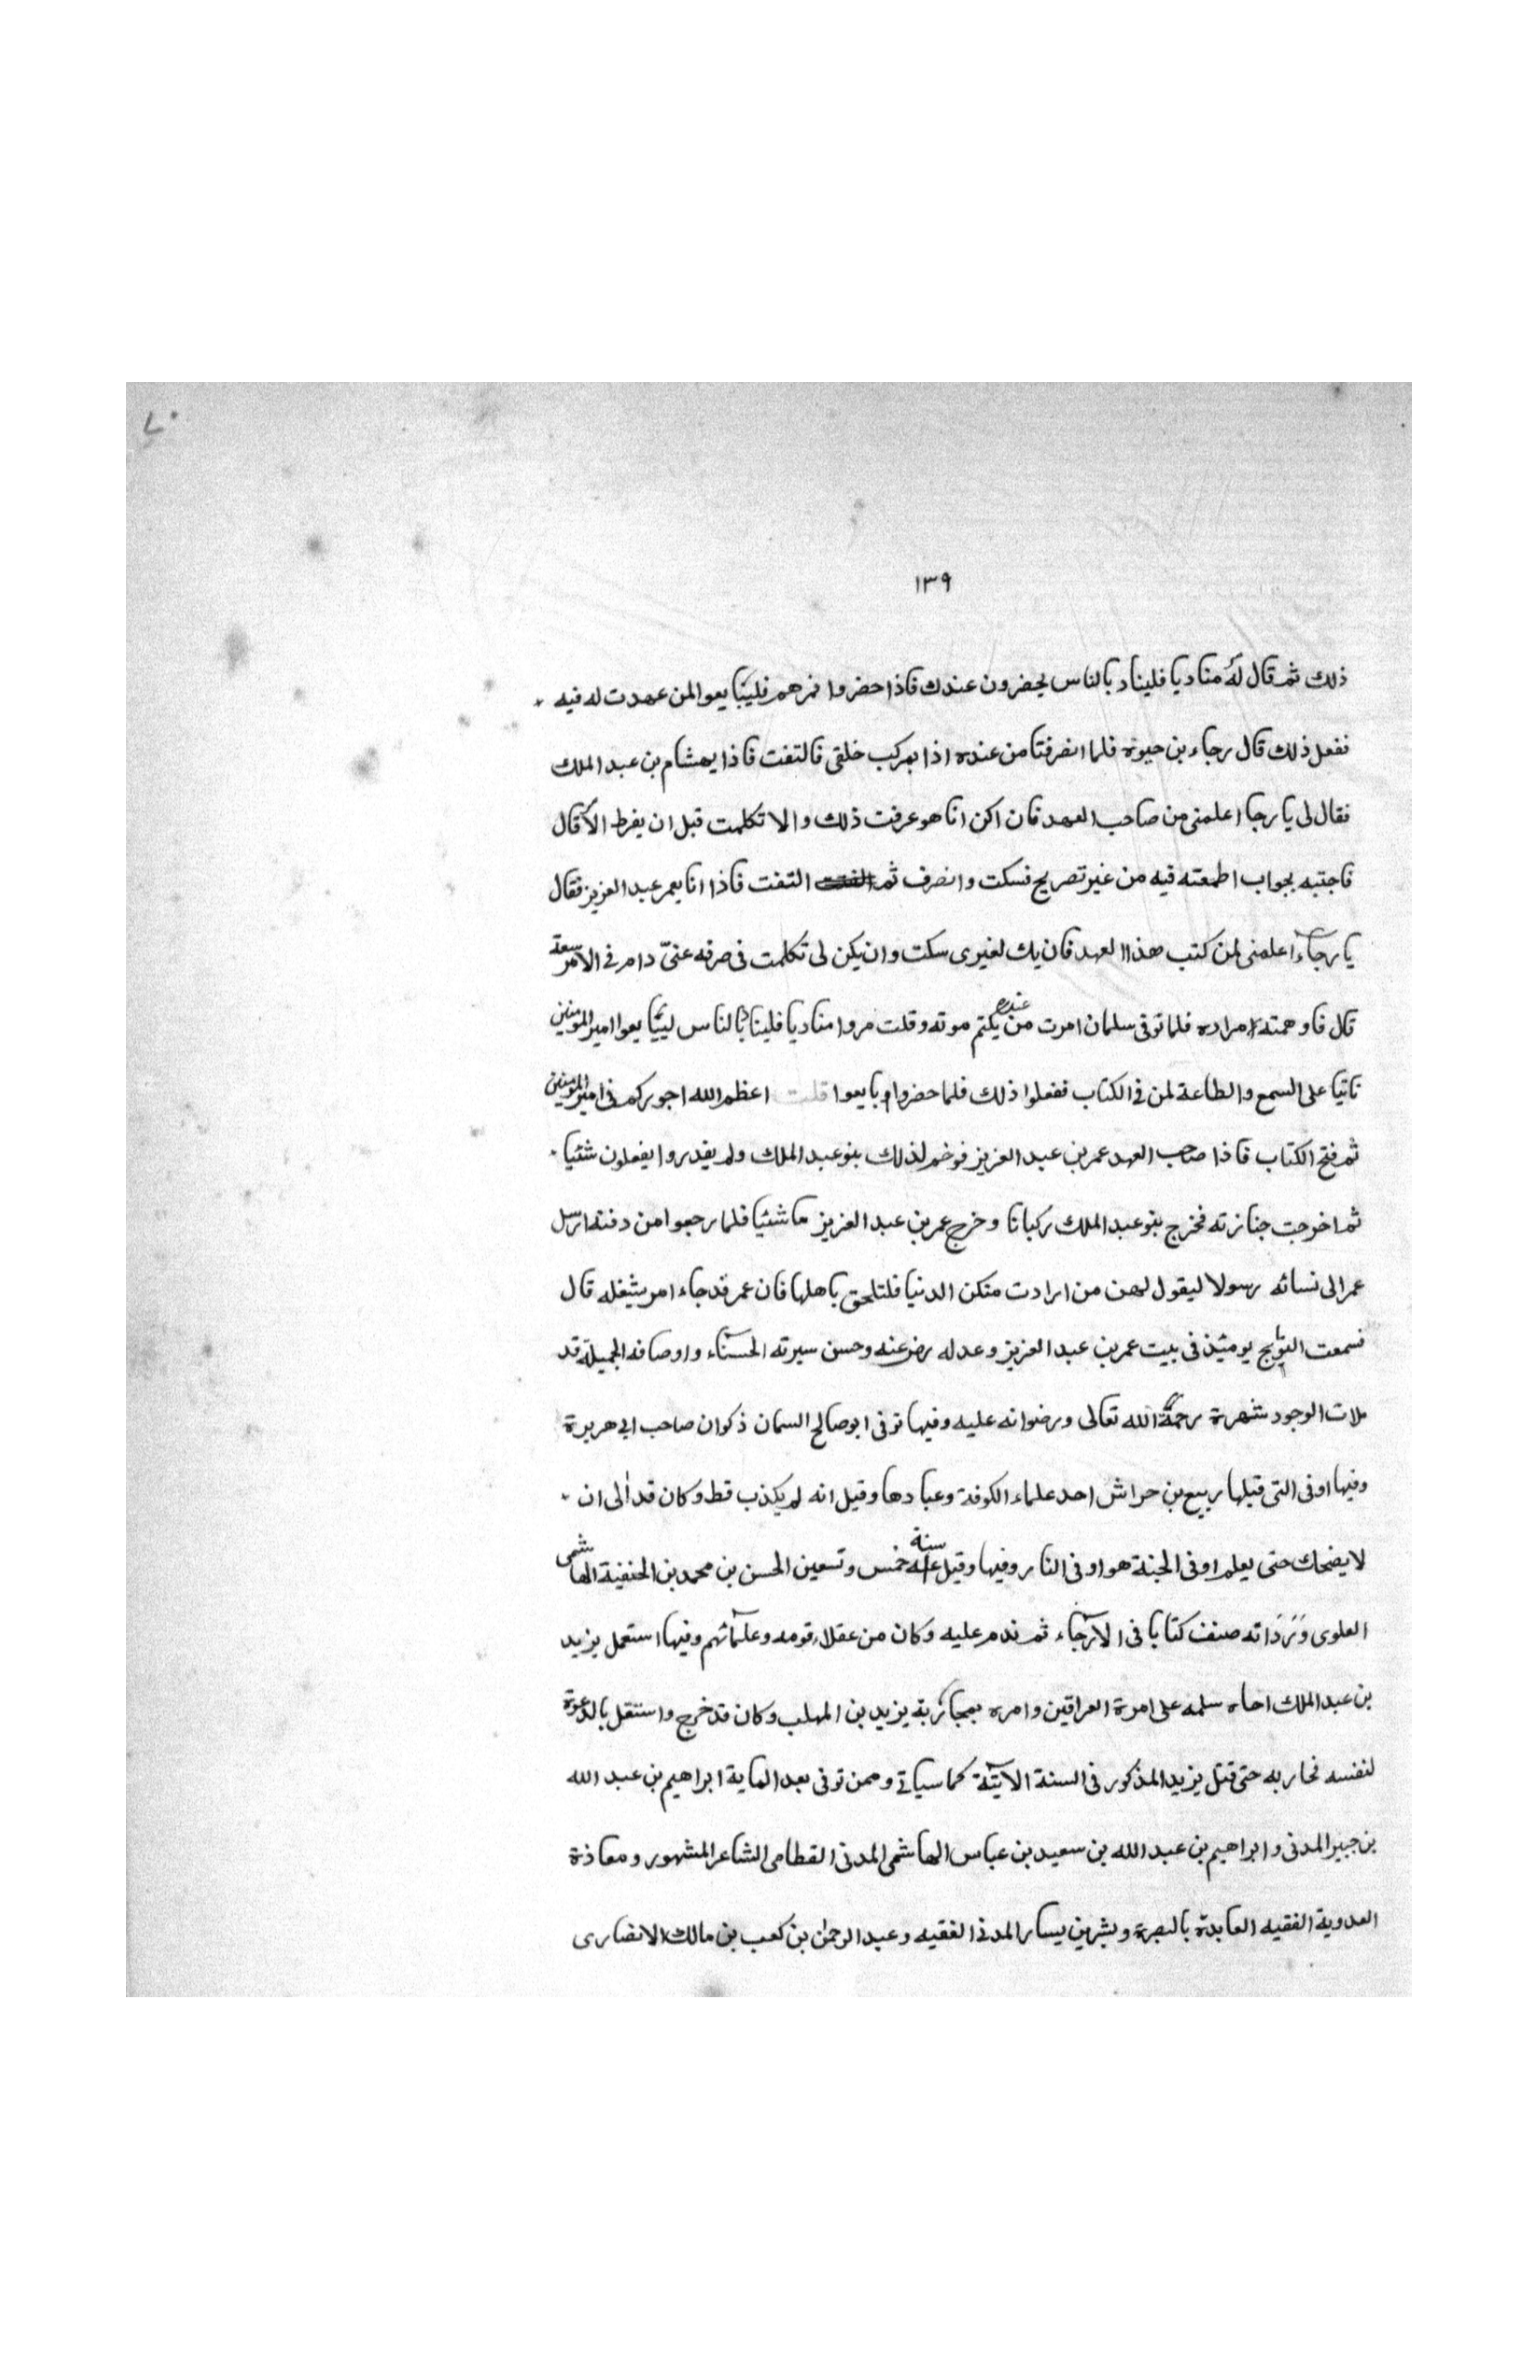 ٧٠
١٣٩
ذلك ثم قال له مناديا فليناد بالناس يحضرون عندك فاذا حضروا فمرهم فليبايعوا لمن عهدت له فيه
ففعل ذلك قال رجاء بن حيوة فلما انصرفنا من عنده اذا بمركب خلفى فالتفت فاذا بهشام بن عبد الملك
فقال لى يا رجا اعلمنى من صاحب العهد فان اكن انا هو عرفت ذلك والا تكلمت قبل ان يفرط الأ قال
فاجتبه بجواب اطمعته فيه من غير تصريح فسكت وانصرف ثم التفت فاذا انا بعمر عبد العزيز فقال
يا رجآء اعلمنى لمن كتب هذا العهد فان يك لغيرى سكت وان يكن لى تكلمت فى صرفه عنّى دام فى الامر سعة
قال فاوهمته امراده فلما توفى سلمان امرت من عنده يكتم موته وقلت مروا مناديا فليناد بالناس ليبايعوا امير المومنين
ثانيا على السمع والطاعة لمن فى الكتاب ففعلوا ذلك فلما حضروا وبايعوا قلت اعظم الله اجوركم فى امير المومنين
ثم فتح الكتاب فاذا صاحب العهد عمر بن عبد العزيز فوخم لذلك بنو عبد الملك ولم يقدروا يفعلون شئيا
ثم اخرجت جنازته فخرج بنو عبد الملك ركبانا وخرج عمر بن عبد العزيز ماشئيا فلما رجعوا من دفنه ارسل
عمر الى نسائه رسولا ليقول لهن من ارادت منكن الدنيا فلتلحق باهلها فان عمر قد جاء امر يشغله قال
فسمعت النوايح يومئذ فى بيت عمر بن عبد العزيز وعدله رضى عنه وحسن سيرته الحسنآء واوصافه الجميلة قد
ملات الوجود شهرة رحمة الله تعالى ورضوانه عليه وفيها توفى ابو صالح السمان ذكوان صاحب ابى هريرة
وفيها او فى التى قبلها ربيع بن حراش احد علماء الكوفة وعبادها وقيل انه لم يكذب قط وكان قد الى ان
لا يضحك حتى يعلم او فى الجنة هو او فى النار وفيها وقيل سنة خمس وتسعين الحسن بن محمد بن الحنفية الهاشمى
العلوى وَرَدَ انه صنف كتابا فى الارجآء ثم ندم عليه وكان من عقلاء قومه وعلمائهم وفيها استعمل يزيد
بن عبد الملك اخاه سلمه على امرة العراقين وامره بمحاربة يزيد بن المهلب وكان قد خرج واستقل بالدعوة
لنفسه فحاربه حتى قتل يزيد المذكور فى السنة الآتية كما سياتى وممن توفى بعد الماية ابراهيم بن عبد الله
بن جبير المدنى وابراهيم بن عبد الله بن سعيد بن عباس الهاشمى المدنى القطامى الشاعر المشهور ومعاذة
العدوية الفقيه العابدة بالبصرة وبشر بن يسار المدنى الفقيه وعبد الرحمن بن كعب بن مالك الانصارى